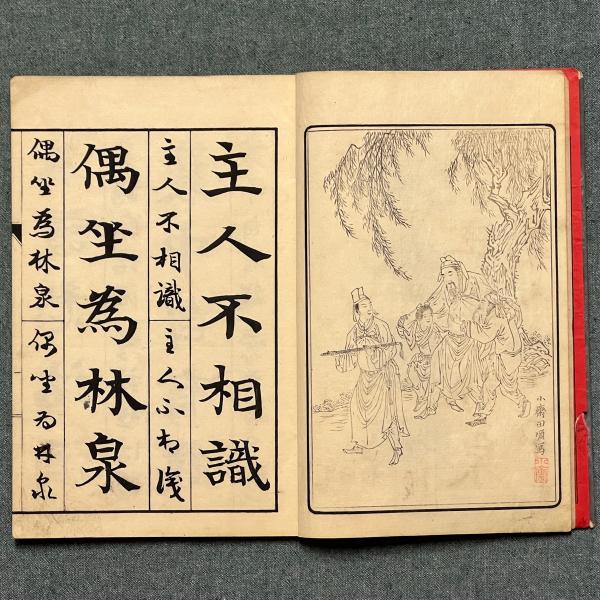 小齋田順寫
主人不相識
主人不相識
主人不相識
偶坐為林泉
偶坐為林泉
偶坐為林泉